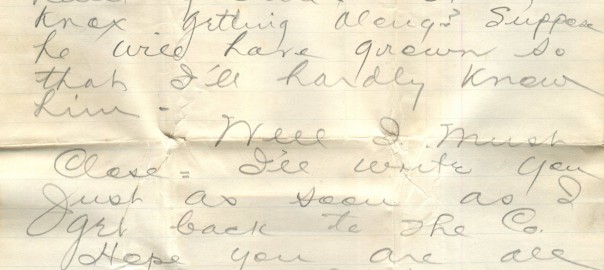 Knox getting along? Suppose
he will have grown so
that I'll hardly know
him -
Well I must
Close = I'll write you
Just as soon as I
get back to the Co.
Hope you are all